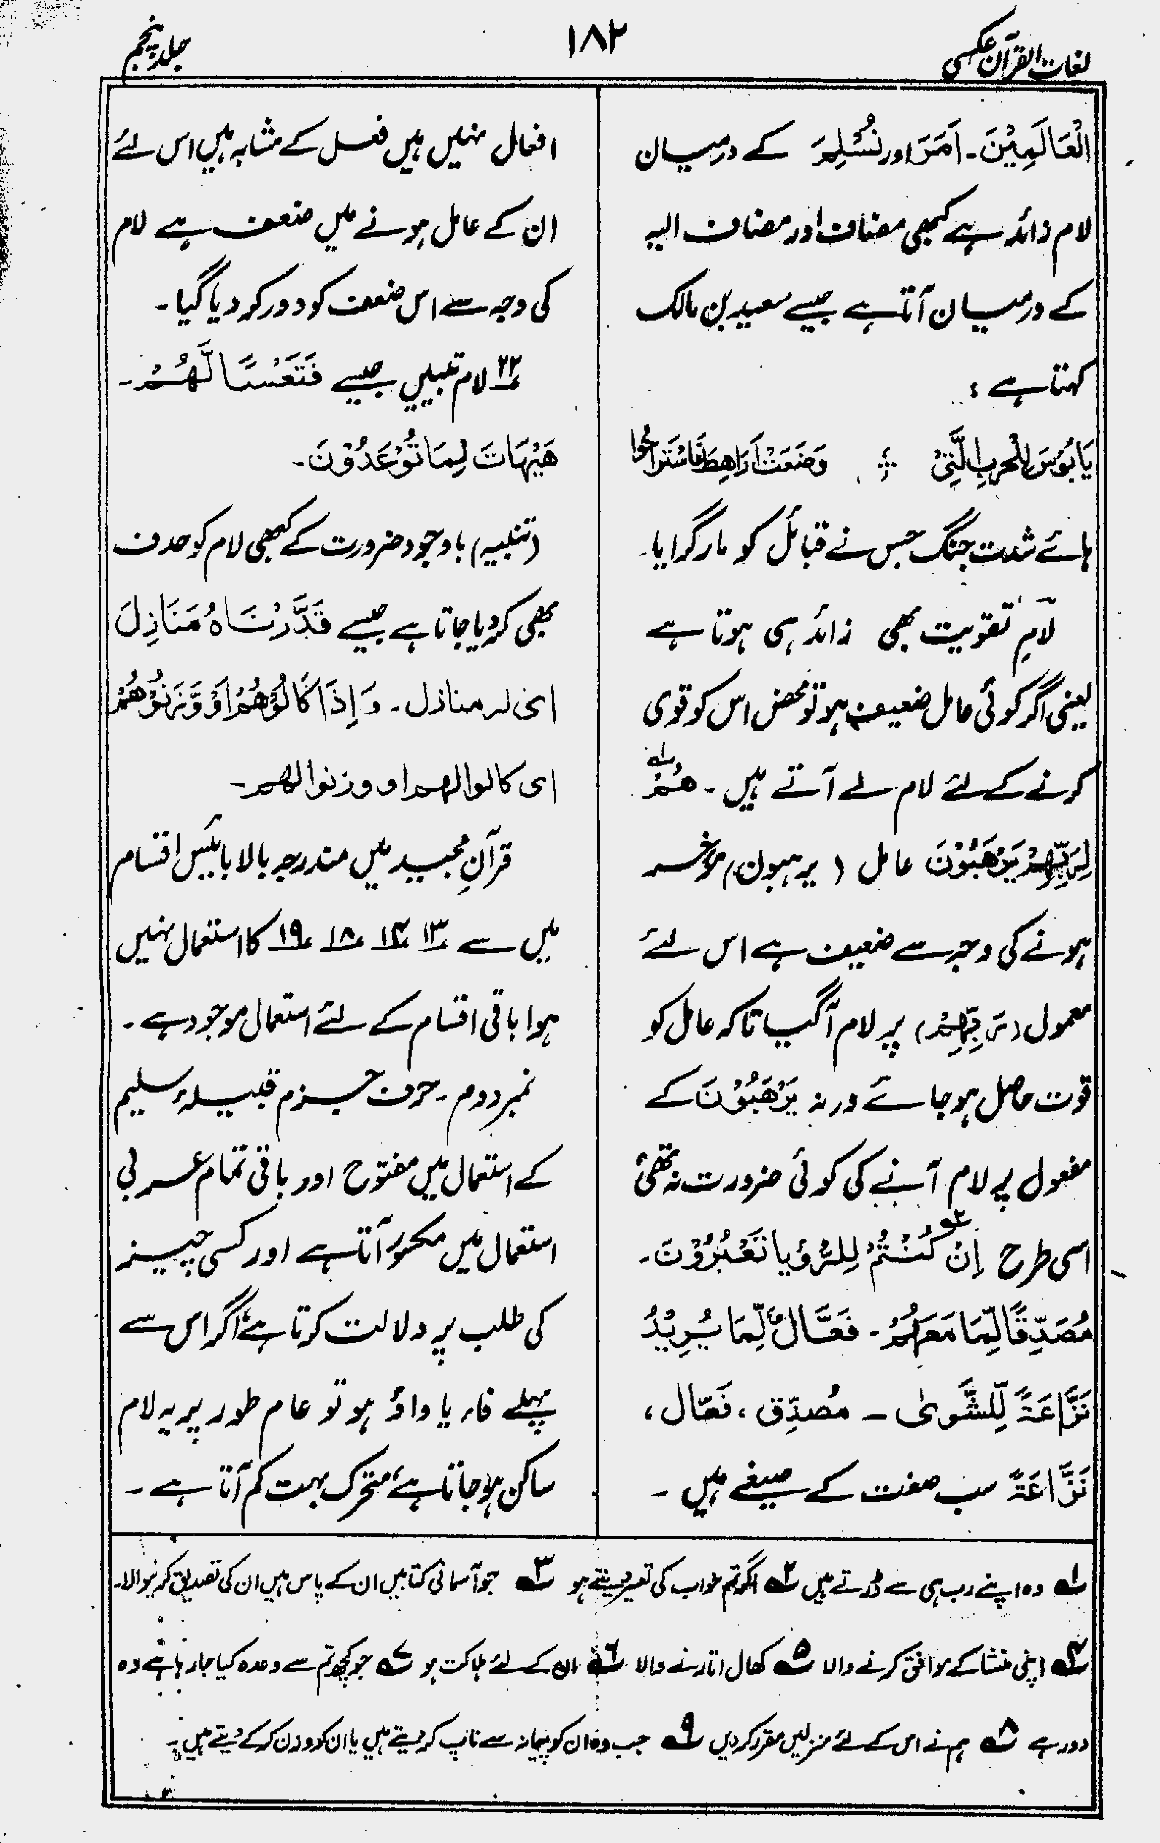 لغات القرآن عکسی
۱۸۲
جلد پنجم
الْعَالَمِیْنَ۔ اَمَرَ اور نُسْلِمَ کے درمیان
لام زائد ہے کبھی مضاف اور مضاف الیہ
کے درمیان آتا ہے جیسے سعید بن مالک
کہتا ہے :
یَا بُوْسَ لِلْحَربِ الَّتِیْ ؞ وَضَعَتْ اَرَاهِطَ فَاسْتَرَاحُوا
ہائے شدت جنگ جس نے قبائل کو مار گرایا۔
لامِ تقویت بھی زائد ہی ہوتا ہے
یعنی اگر کوئی عامل ضعیف ہو تو محض اس کو قوی
کرنے کے لئے لام لے آتے ہیں۔ هُمْ
لِرَبِّهِمْ یَرْهَبُوْنَ ؁۱ عامل (یرہبون) مؤخر
ہونے کی وجہ سے ضعیف ہے اس لئے
معمول (رَبِّهِمْ) پر لام آگیا تاکہ عامل کو
قوت حاصل ہو جائے ورنہ یَرْهَبُوْنَ کے
مفعول پر لام آنے کی کوئی ضرورت نہ تھی
اسی طرح اِنْ كُنْتُمْ لِلرُّؤیا تَعْبُرُوْنَ۔
مُصَدِّقًا لِّمَا مَعَهُمْ۔ فَعَّالٌ لِّمَا یُرِیْدُ
نَزَّاعَةً لِّلشَّوىٰ ۔ مُصدِّق، فَعّال،
نَزَّاعَةً سب صفت کے صیغے ہیں ۔
افعال نہیں ہیں فعل کے مشابہ ہیں اس لئے
ان کے عامل ہونے میں ضعف ہے لام
کی وجہ سے اس ضعف کو دور کر دیا گیا۔
؁۲۲ لام تبیین جیسے فَتَعْسًا لَّهُمْ۔
هَیْهَاتَ لِمَا تُوْعَدُوْنَ۔
(تنبیہ) باوجود ضرورت کے کبھی لام کو حذف
بھی کر دیا جاتا ہے جیسے قَدَّرْنَاهُ مَنَازِلَ
ای لہ منازل۔ وَاِذَا كَالُوْهُمْ اَوْ وَّزَنُوْهُمْ
ای کالوا لھم او وزنوا لھم۔
قرآن مجید میں مندرجہ بالا بائیس اقسام
میں سے ؁۱۳ ؁۱۴ ؁۱۸ ؁۱۹ کا استعمال نہیں
ہوا باقی اقسام کے لئے استعمال موجود ہے ۔
نمبر دوم ۔ حرف جزم قبیلۂ سلیم
کے استعمال میں مفتوح اور باقی تمام عربی
استعمال میں مکسور آتا ہے اور کسی چیز
کی طلب پر دلالت کرتا ہے، اگر اس سے
پہلے فاء یا واؤ ہو تو عام طور پر یہ لام
ساکن ہو جاتا ہے، متحرک بہت کم آتا ہے ۔
؁۱ وہ اپنے رب ہی سے ڈرتے ہیں ؁۲ اگر تم خواب کی تعبیر دیتے ہو ؁۳ جو آسمانی کتابیں ان کے پاس ہیں ان کی تصدیق کرنیوالا۔
؁۴ اپنی منشا کے موافق کرنے والا ؁۵ کھال اتارنے والا ؁۶ ان کے لئے ہلاکت ہو ؁۷ جو کچھ تم سے وعدہ کیا جا رہا ہے وہ
دور ہے ؁۸ ہم نے اس کے لئے منزلیں مقرر کر دیں ؁۹ جب وہ ان کو پیمانہ سے ناپ کر دیتے ہیں یا ان کو وزن کر کے دیتے ہیں۔